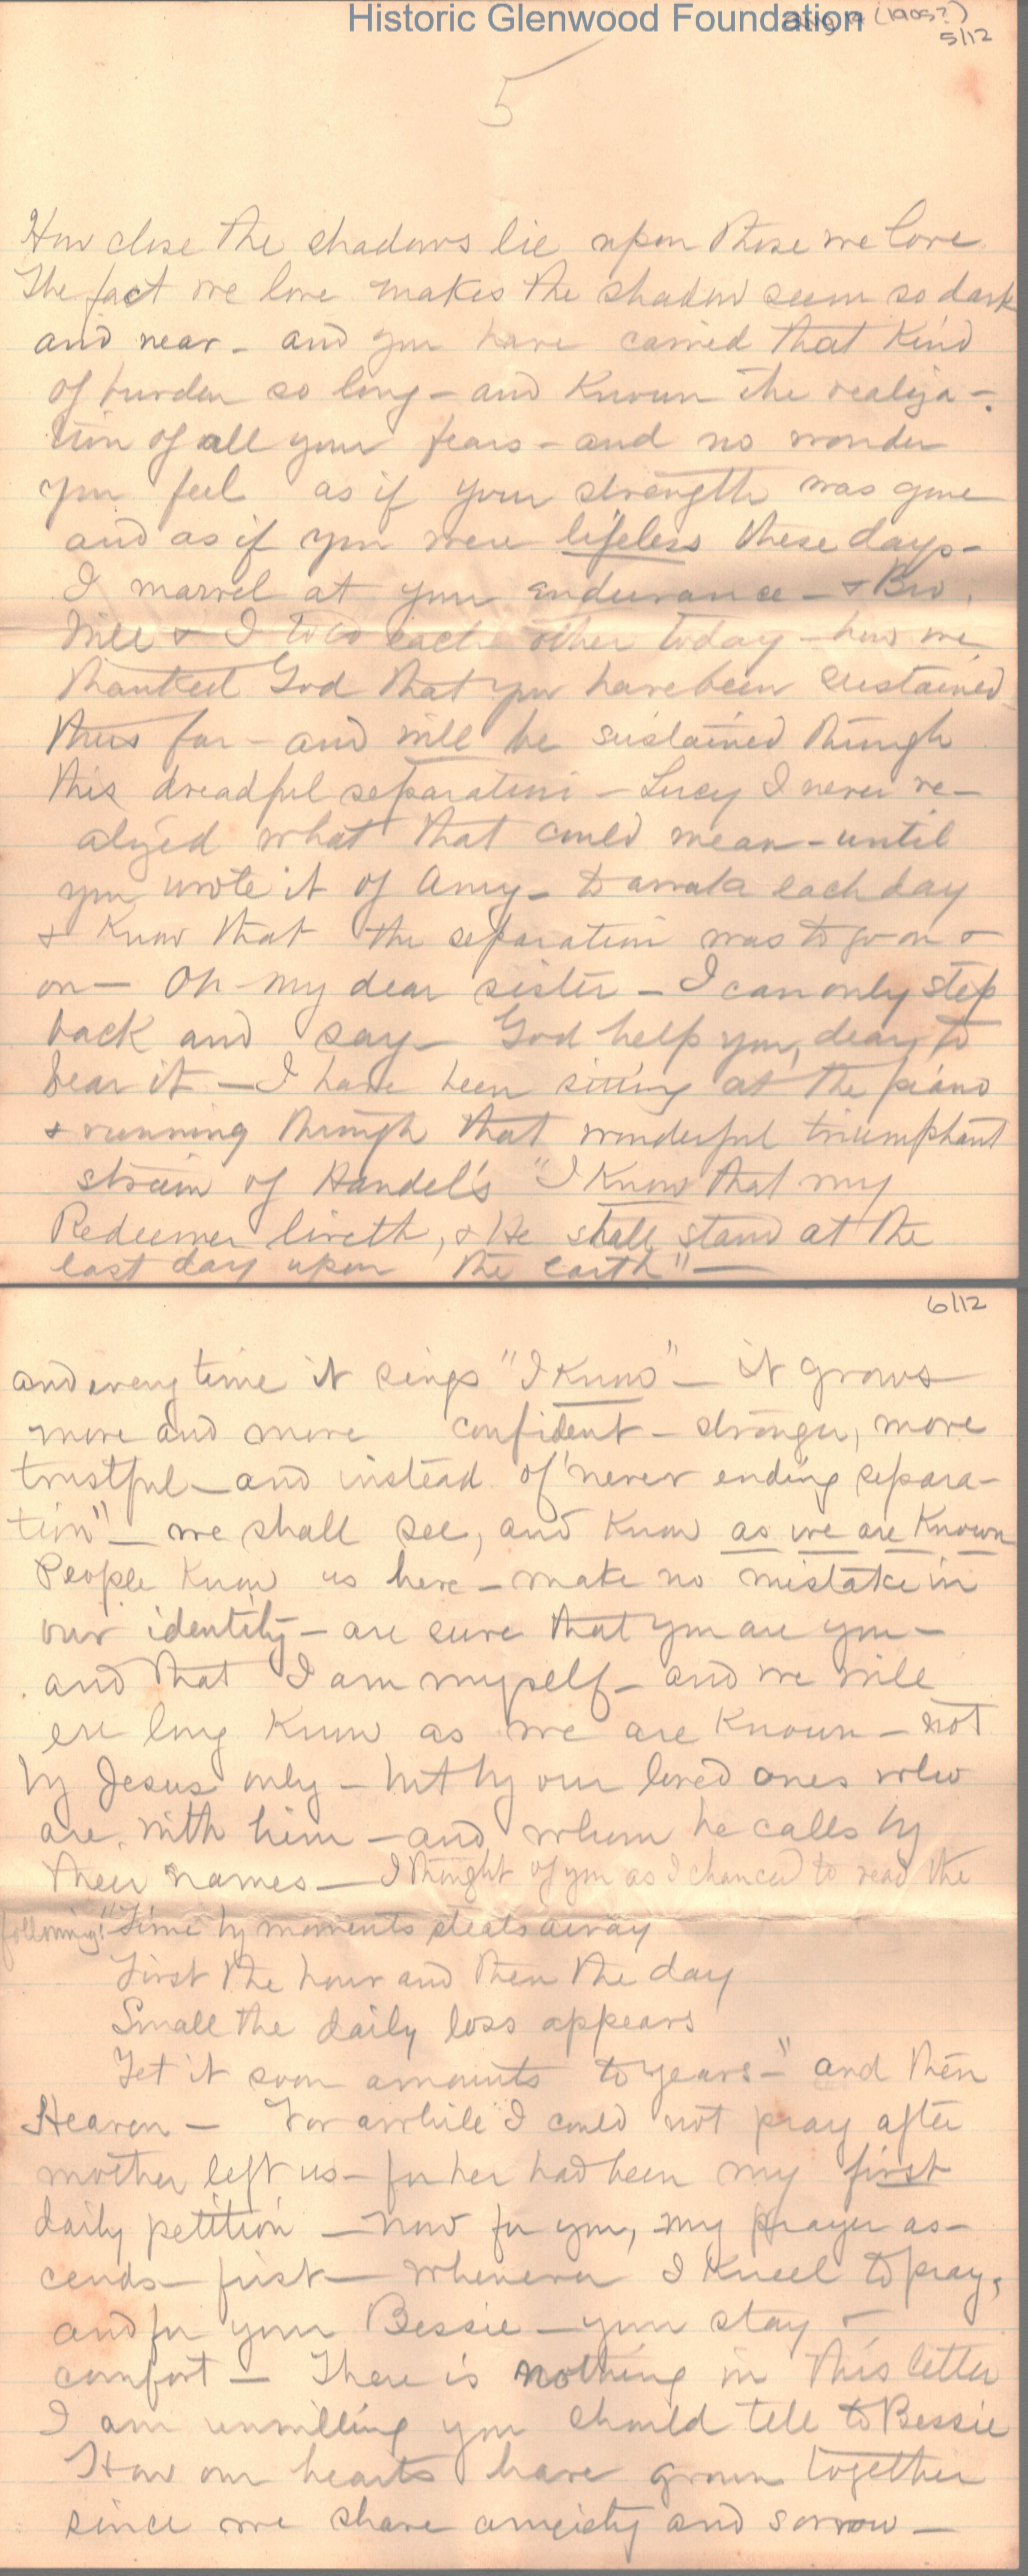 Historic Glenwood Foundation
(1905?)
5/12
5
How close the shadows lie upon those we love.
The fact we love makes the shadow seem so dark
and near - and you have carried that kind
of burden so long - and known the realiza-
tion of all your fears - and no wonder
you feel as if your strength was gone
and as if you were lifeless these days -
I marvel at your endurance - & Bro.
Will & I told each other today - how we
thanked God that you have been sustained
thus far - and will be sustained through
this dreadful separation - Lucy I never re-
alized what that could mean - until
you wrote it of Amy - to awake each day
& know that the separation was to go on &
on - Oh my dear sister - I can only step
back and say - God help you, dear, to
bear it - I have been sitting at the piano
& running through that wonderful triumphant
strain of Handel's "I Know that my
Redeemer liveth, & He shall stand at the
last day upon the earth" -
6/12
and every time it sings "I Know" - it grows
more and more confident - stronger, more
trustful - and instead of "never ending separa-
tion" - we shall see, and know as we are known
People know us here - make no mistake in
our identity - are sure that you are you -
and that I am myself - and we will
ere long know as we are known - not
by Jesus only - but by our loved ones who
are with him - and whom he calls by
their names - I thought of you as I chanced to read the
following: "Time by moments steals away
First the hour and then the day
Small the daily loss appears
Yet it soon amounts to years -" and then
Heaven - For awhile I could not pray after
mother left us - for her had been my first
daily petition - now for you, my prayer as-
cends - first - whenever I kneel to pray,
and for your Bessie - your stay &
comfort - There is nothing in this letter
I am unwilling you should tell to Bessie
How our hearts have grown together
since we share anxiety and sorrow -